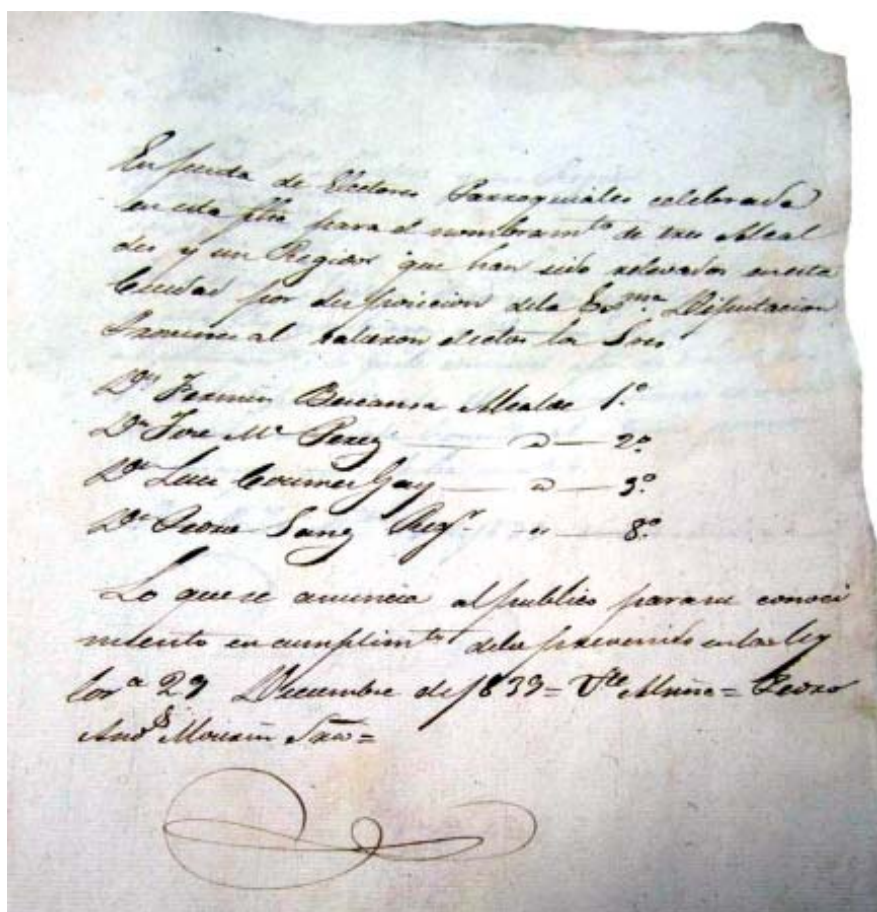 En Junta de Electores Parroquiales celebrada
en este para el nombram.to de tres Alcal
des y un Regidor que han sido relevados en esta
Ciudad por disposicion dela Exc.ma Diputacion
Provincial salieron electos los Sres.
D.n Fermin Alcalde 1.º
D.n Jose M.a Perez — 2.º
D.n Luis Gay — 3.º
D.n Pedro Sanz Reg.r — 8.º
Lo que se anuncia al publico para su conoci
miento en cumplim.to delo prevenido en la ley
Cor.a 29 Diciembre de 1839 = V.te = Pedro
And.s =